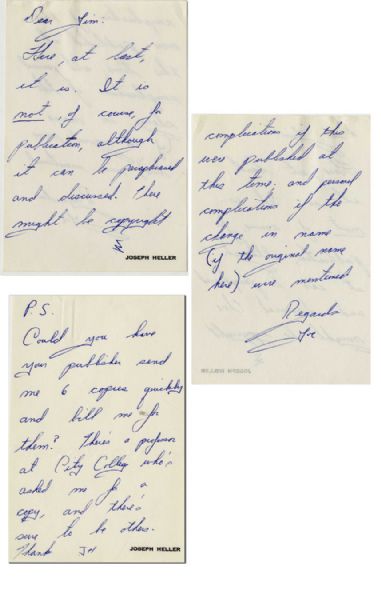 Dear Jim:
Here, at last,
it is. It is
not, of course, for
publication, although
it can be paraphrased
and discussed. There
might be copyright
JOSEPH HELLER
complications if this
were published at
this time. and personal
complications if the
change in name
(if the original name
here) were mentioned
Regards
Joe
JOSEPH HELLER
P.S.
Could you have
your publisher send
me 6 copies quickly
and bill me for
them? There's a professor
at City College who's
asked me for a
copy, and there's
sure to be others.
Thank JH
JOSEPH HELLER